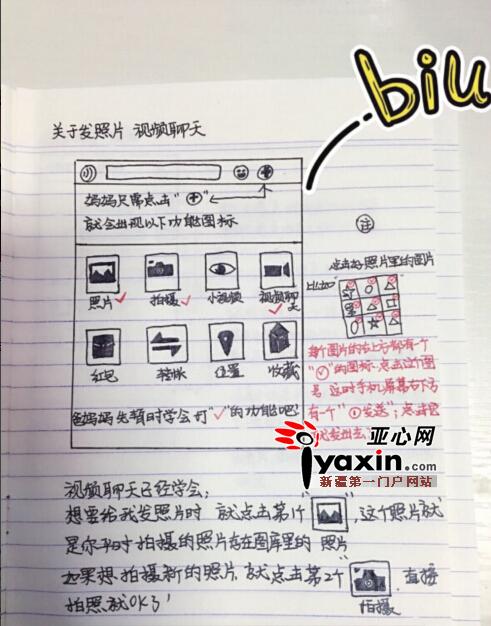 biu
关于发照片 视频聊天
妈妈只需点击"⊕"
就会出现以下功能图标
注
点击好照片里的图片
比如
照片✓ 拍摄✓ 小视频 视频聊天✓
红包 转账 位置 收藏
每个图片的右上方都有一个
"✓"的图标,点击这个图
另,这时手机屏幕右下方
有一个"①发送",点击它
就发出去
爸妈妈先暂时学会打"✓"的功能吧!
亚心网
iyaxin.com
新疆第一门户网站
视频聊天已经学会,
想要给我发照片时 就点击第1个" ",这个照片就
是你平时拍摄的照片存在图库里的 照片"
如果想拍摄新的照片,就点击第2个 ,直接
拍摄
拍照就OK了!